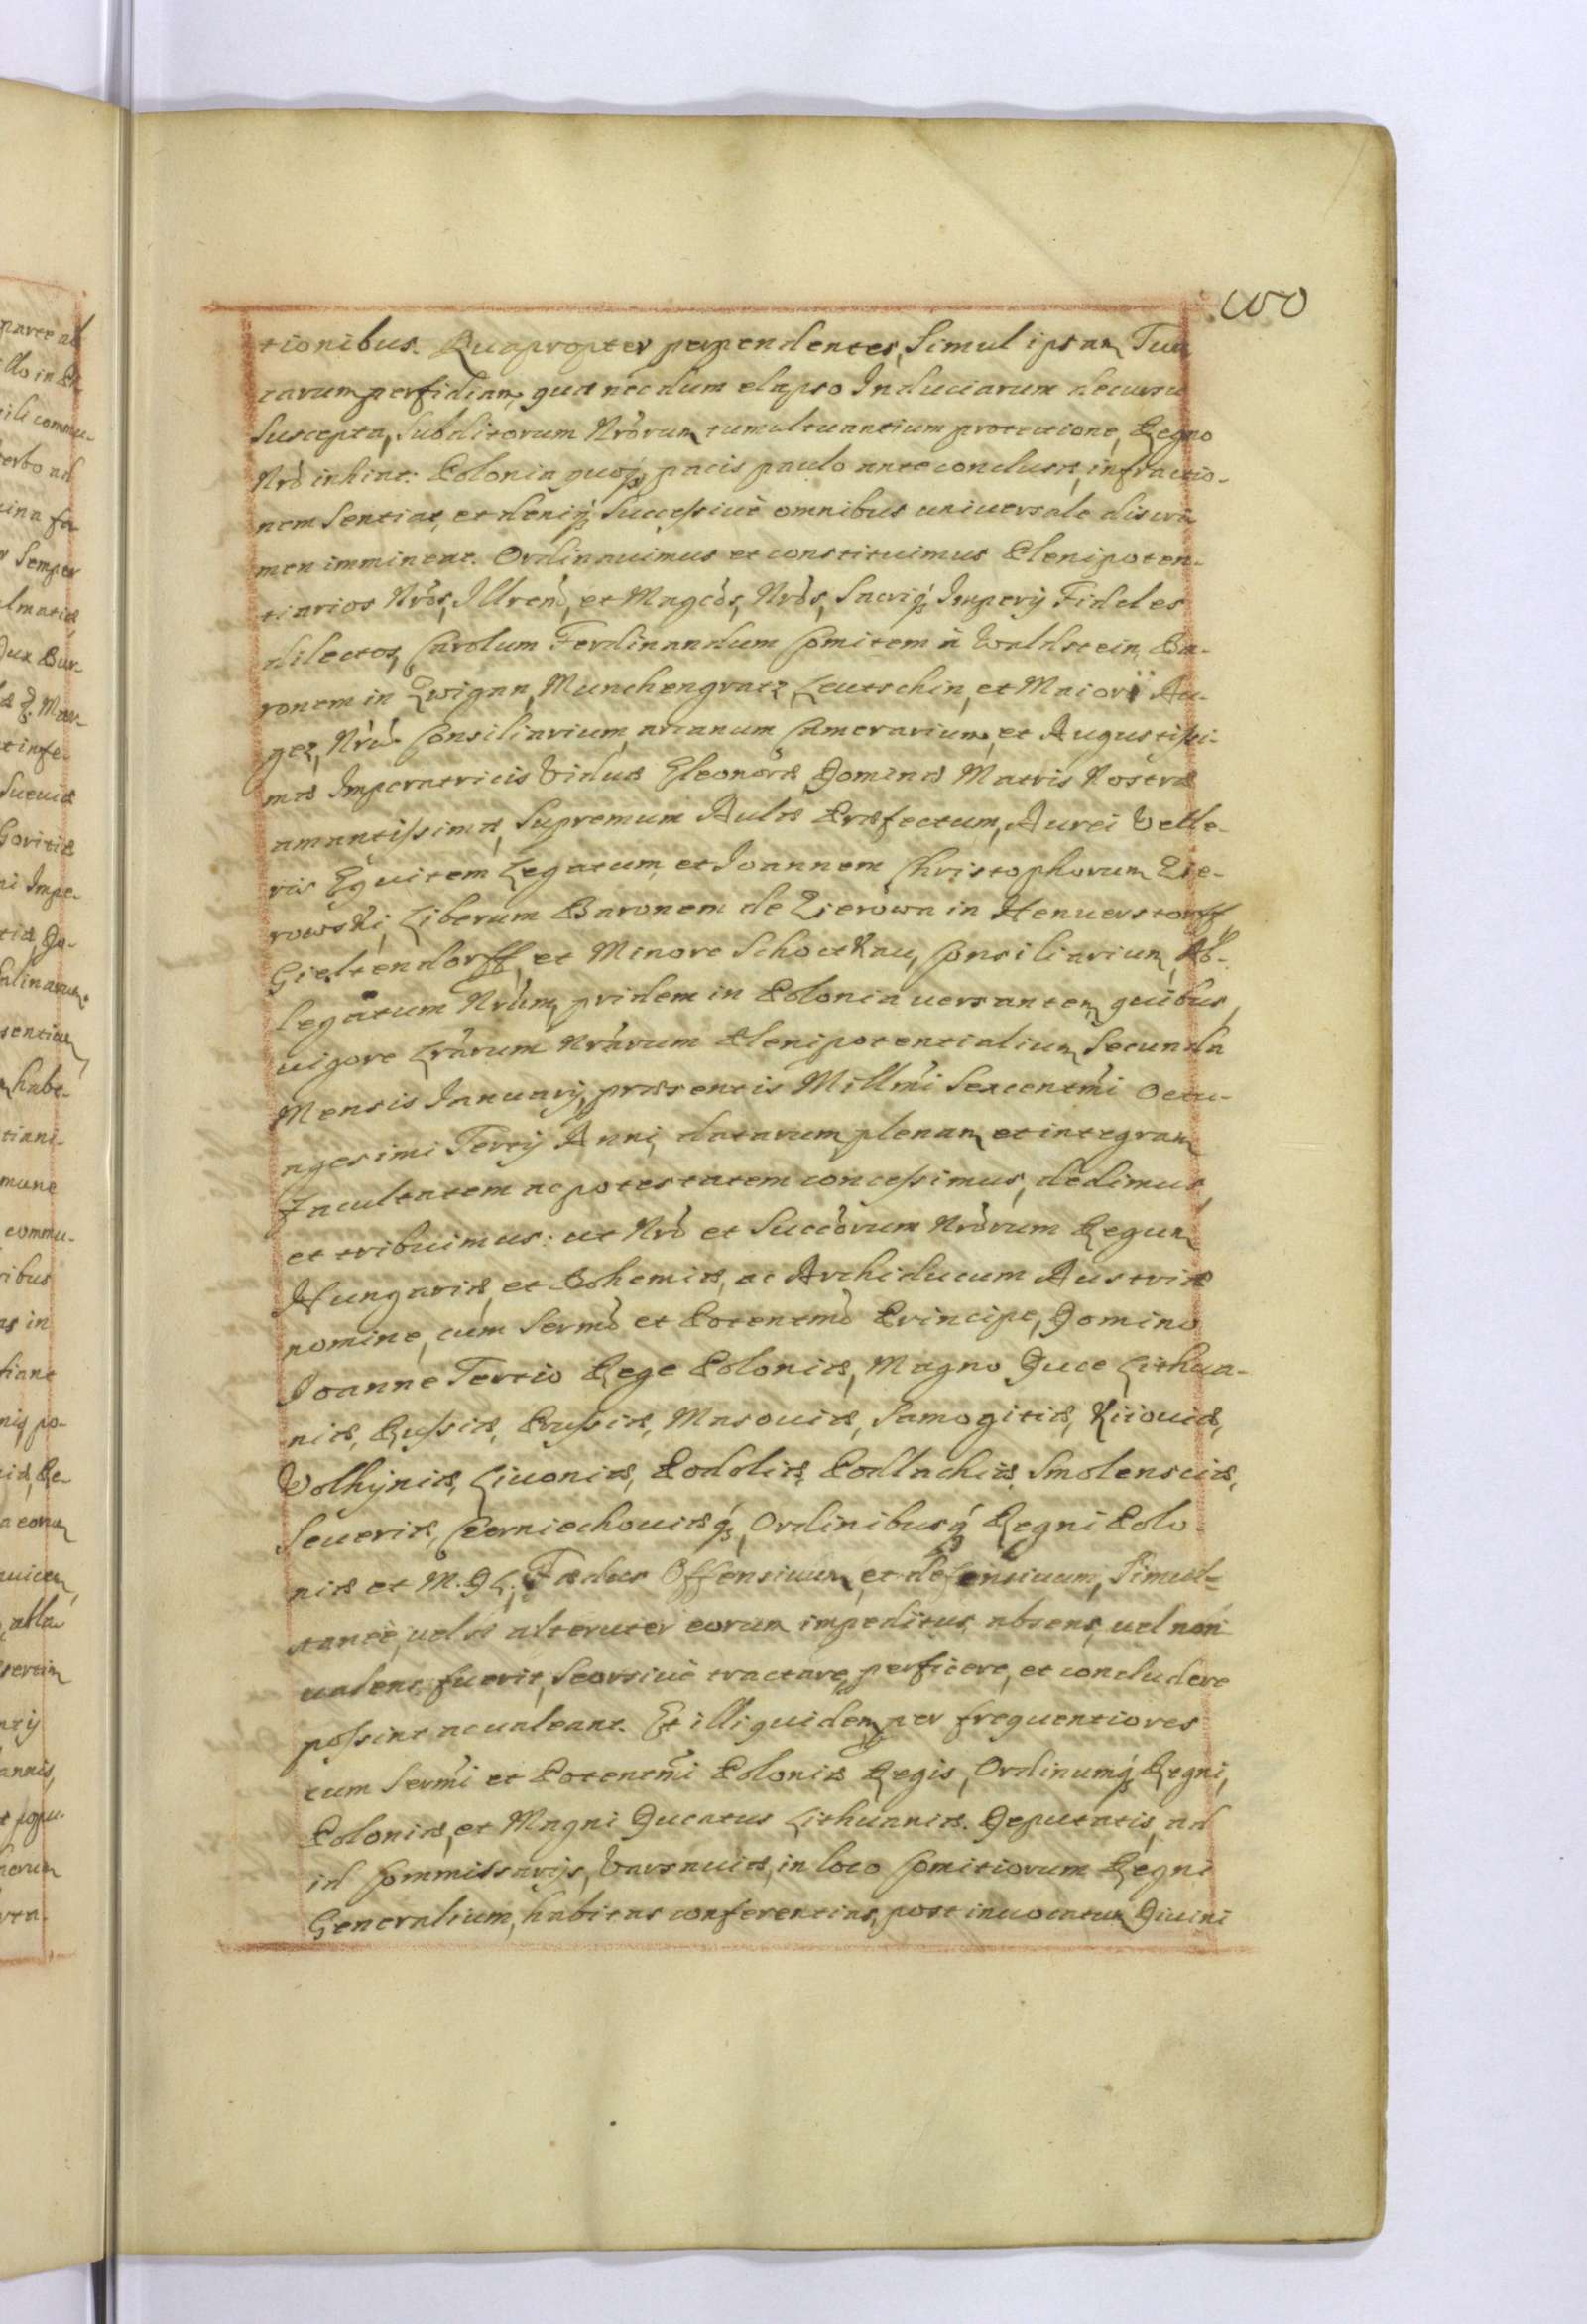 tionibus. Quapropter perpendentes, Simul ipsam Tur
carum perfidiam, quæ nec dum elapso Induciarum decursu
Suscepta, Subditorum Nrórum tumultuantium protectione, Regno
Nrò inhiat: Polonia quoq; pacis paulo ante conclusæ, infractio-
nem Sentiat, et deniq; Successivè omnibus universale discri
men immineat. Ordinavimus et constituimus Plenipoten-
tiarios Nrós, Illrem, et Magcós, Nrós, Sacriq; Imperij Fideles
dilectos, Carolum Ferdinandum Comitem à Waldstein, Ba-
ronem in Zwigan, Munchengratz, Leutschin, et Maiori Au-
gez, Nrúm Consiliarium, arcanum Camerarium, et Augustissi-
mæ Imperatricis Viduæ Eleonoræ Dominæ Matris Nostræ
amantissimæ, Supremum Aulæ Præfectum, Aurei Velle-
ris Equitem Legatum, et Joannem Christophorum Zie-
rowski, Liberum Baronem de Zierowa in Henuerstorff
Gieltendorff, et Minore Schockkau, Consiliarium, Ab-
legatum Nrúm, pridem in Polonia versantem, quibus,
vigore Lrárum Nrárum Plenipotentialium, Secunda
Mensis Januarij, præsentis Millmi Sexcentmi Octu-
agesimi Tertij Anni, datarum, plenam et integram
Facultatem ac potestatem concessimus, dedimus,
et tribuimus: ut Nrò et Succórum Nrórum Regum
Hungariæ, et Bohemiæ, ac Archiducum Austriæ
nomine, cum Sermò et Potentmò Principe, Domino
Joanne Tertio Rege Poloniæ, Magno Duce Lithua-
niæ, Russiæ, Prussiæ, Masoviæ, Samogitiæ, Kiioviæ,
Volhijniæ, Livoniæ, Podoliæ, Podlachiæ, Smolensciæ,
Severiæ, Czerniechoviæq;, Ordinibusq; Regni Polo-
niæ et M. D. L. Fædus Offensivum, et defensivum, Simul-
taneè, vel si alteruter eorum impeditus, absens, vel non
valens fuerit, Seorsivè tractare, perficere, et concludere
possint ac valeant. Et illi quidem, per frequentiores
cum Sermi et Potentmi Poloniæ Regis, Ordinumq; Regni,
Poloniæ, et Magni Ducatus Lithuaniæ. Deputatis, ad
id Commissarijs, Varsaviæ, in loco Comitiorum Regni
Generalium, habitas conferentias, post invocatum Divini